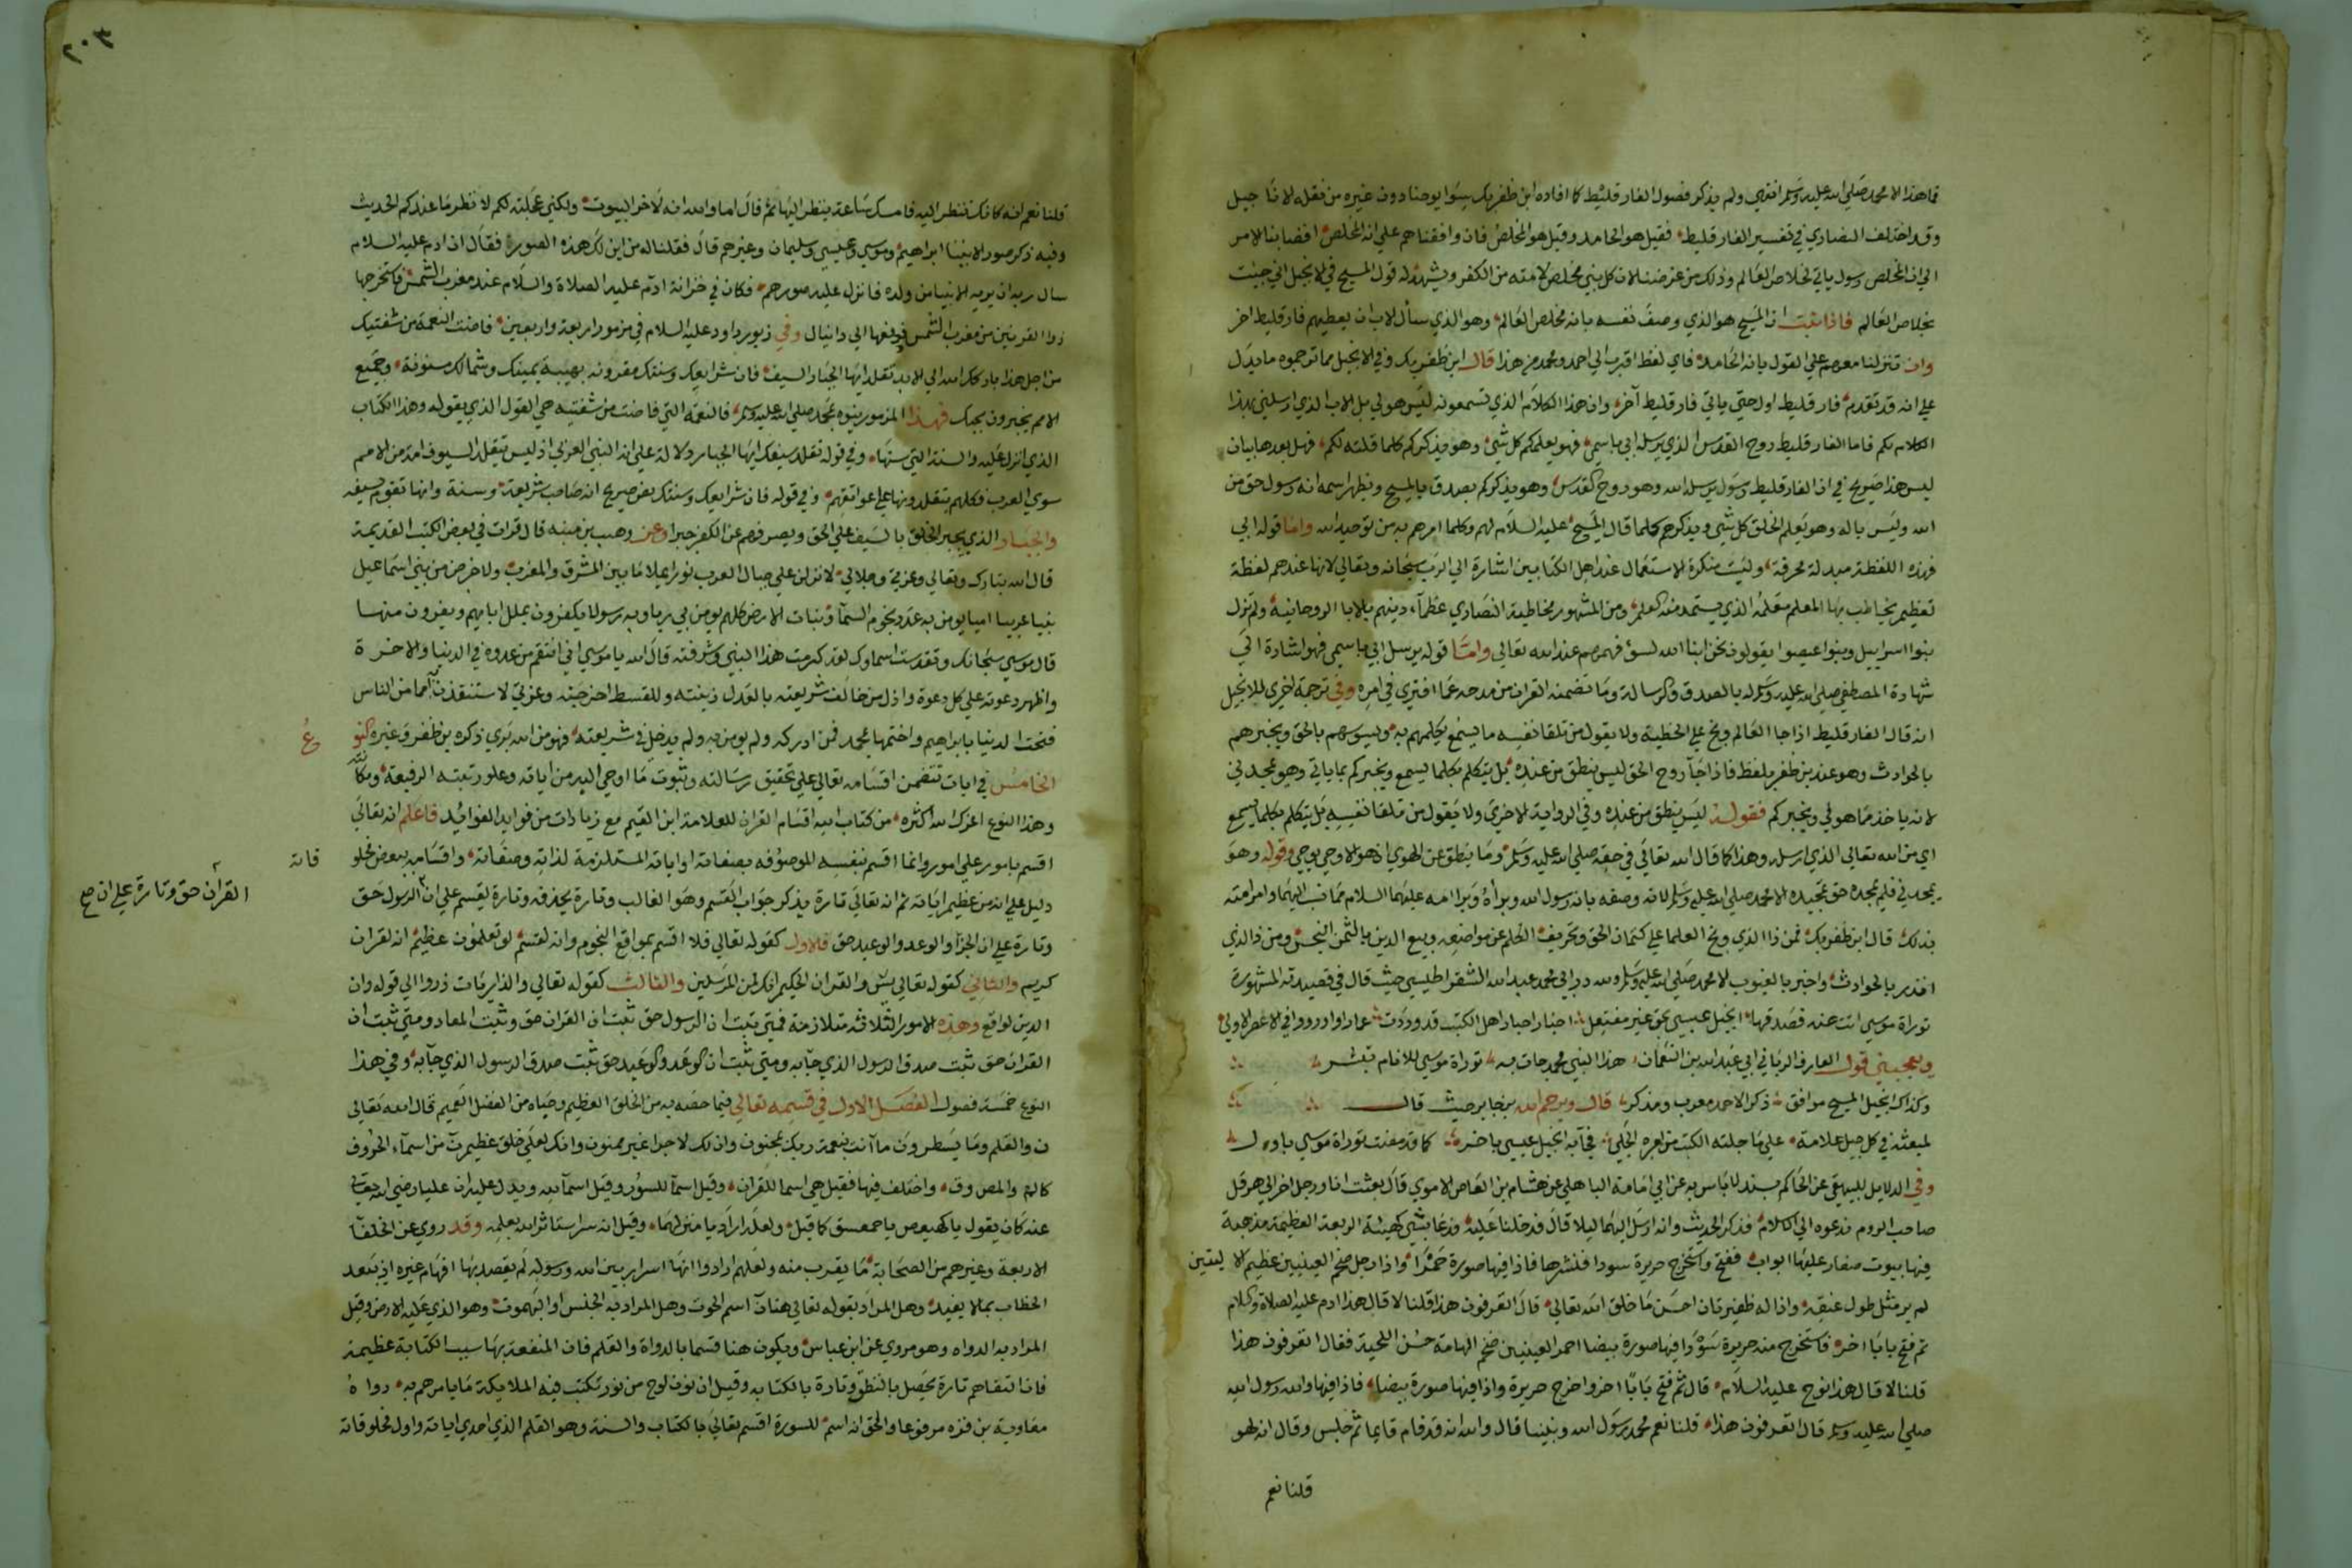 فما هذا الا محمد صلى الله عليه وسلم انتهى ولم يذكر فصول الفارقليط كما افاده ابن ظفر بك سوا يوحنا دون غيره من نقله الاناجيل
وقد اختلف النصاري في تفسير الفارقليط فقيل هو الحامد وقيل هو المخلص فان وافقناهم على انه المخلص افضا بنا الامر
الى ان المخلص رسول ياتي لخلاص العالم وذلك من غرضنا لان كل نبي مخلص لامته من الكفر ويشهد له قول المسيح في الانجيل اني جيت
بخلاص العالم فاذا ثبت ان المسيح هو الذي وصف نفسه بانه مخلص العالم وهو الذي سأل الاب ان يعطيهم فارقليط اخر
وان تنزلنا معهم علي القول بانه الحامد فاي لفظ اقرب الى احمد ومحمد من هذا قال ابن ظفر بك وفي الانجيل مما ترجموه ما يدل
علي انه قد تقدم فارقليط اول حتي ياتي فارقليط آخر وان هذا الكلام الذي تسمعونه ليس هو لي بل للاب الذي ارسلني بهذا
الكلام لكم فاما الفارقليط روح القدس الذي يرسله ابي باسمي فهو يعلمكم كل شي وهو يذكركم كلما قلته لكم فهل بعد هذا بيان
ليس هذا صريح في ان الفارقليط رسول يرسله الله وهو روح القدس وهو يذكركم يصدق بالمسيح ويظهر اسمه انه رسول حق من
الله وليس باله وهو يعلم الخلق كل شي ويذكرهم كلما قال المسيح عليه السلام لهم وكلما امرهم به من توحيد الله واما قوله ابي
فهذه اللفظة مبدلة محرفة وليست منكرة الاستعمال عند اهل الكتابين اشارة الى الرب سبحانه وتعالى لانها عندهم لفظة
تعظيم يخاطب بها المعلم معلمه الذي يستمد منه العلم ومن المشهور مخاطبة النصاري عظمآء دينهم بالابا الروحانية ولم تزل
بنوا اسراييل وبنوا عيصوا يقولون نحن ابنا الله لسوء فهمهم عند الله تعالى واما قوله يرسل ابي باسمي فهو اشارة الى
شهادة المصطفى صلي الله عليه وسلم له بالصدق والرسالة وما تضمنه القران من مدحه عما افتري في امره وفي ترجمة اخرى للانجيل
انه قال الفارقليط اذا جا العالم وبخ علي الخطية ولا يقول من تلقا نفسه ما يسمع يكلمهم به ويسوسهم بالحق ويخبرهم
بالحوادث وهو عند بن ظفر بلفظ فاذا جآ روح الحق ليس ينطق من عنده بل يتكلم بكلما يسمع ويخبركم بما ياتي وهو يمجدني
لانه ياخذ مما هو لي ويخبركم فقوله ليس ينطق من عنده وفي الرواية الاخرى ولا يقول من تلقا نفسه بل يتكلم بكلما يسمع
اي من الله تعالى الذي ارسله وهذا كما قال الله تعالي في حقه صلي الله عليه وسلم وما ينطق عن الهوي ان هو الا وحي يوحي وقوله وهو
يمجدني فلم يمجده حق تمجيده الا محمد صلى الله عليه وسلم لانه وصفه بانه رسول الله وبرأه وبرا امه عليهما السلام مما نسب اليهما وامر امته
بذلك قال ابن ظفر بك فمن ذا الذي وبخ العلما على كتمان الحق وتحريف الكلم عن مواضعه وبيع الدين بالثمن البخس ومن ذا الذي
انذر بالحوادث واخبر بالغيوب الا محمد صلى الله عليه وسلم ولله در ابي محمد عبد الله الشقراطيسي حيث قال في قصيدته المشهورة
توراة موسى اتت عنه فصدقها انجيل عيسي بحق غير مفتعل اخبار احبار اهل الكتب قد وردت عما راوا او رووا في الاعصر الاولى
ويعجبني قول العارف الرباني ابي عبد الله بن النعمان هذا النبي محمد جات به توراة موسى للانام تبشر
وكذاك انجيل المسيح موافق ذكرا لاحمد معرب ومذكر قال ويرحم الله بن جابر حيث قال
لمبعثه في كل جيل علامة على ما جلته الكتب من امره الجلي فجآ به انجيل عيسى باخر كما قد مضت توراة موسى باول
وفي الدلايل للبيهقي عن الحاكم بسند لا باس به عن ابي امامة الباهلي عن هشام بن العاص الاموي قال بعثت انا ورجل اخر الى هرقل
صاحب الروم ندعوه الى الاسلام فذكر الحديث وانه ارسل اليهما ليلا قال فدخلنا عليه فدعا بشي كهيئة الربعة العظيمة مذهبة
فيها بيوت صغار عليها ابواب ففتح واستخرج حريرة سودا فنشرها فاذا فيها صورة حمرا واذا رجل ضخم العينين عظيم الاليتين
لم ير مثل طول عنقه واذا له ظفيرتان احسن ما خلق الله تعالى قال اتعرفون هذا قلنا لا قال هذا ادم عليه الصلاة والسلام
ثم فتح بابا اخر فاستخرج منه حريرة سودا فيها صورة بيضا احمر العينين ضخم الهامة حسن اللحية فقال اتعرفون هذا
قلنا لا قال هذا نوح عليه السلام قال ثم فتح بابا اخر واخرج حريرة واذا فيها صورة بيضا فاذا فيها والله رسول الله
صلى الله عليه وسلم قال اتعرفون هذا قلنا نعم محمد رسول الله ونبينا قال والله انه قد قام قايما ثم جلس وقال انه لهو
قلنا نعم
٢٠٣
قلنا نعم انه كانك تنظر اليه فامسك ساعة ينظر اليها ثم قال اما والله انه لاخر البيوت ولكني عجلته لكم لانظر ما عندكم الحديث
وفيه ذكر صور الانبيا ابراهيم وموسى وعيسى وسليمان وغيرهم قال فقلنا له من اين لك هذه الصور فقال ان ادم عليه السلام
سال ربه ان يريه الانبيا من ولده فانزل عليه صورهم فكان في خزانة ادم عليه الصلاة والسلام عند مغرب الشمس فاستخرجها
ذوا القرنين من مغرب الشمس فدفعها الى دانيال وفي زبور داود عليه السلام في مزمور اربعة واربعين فاضت النعمة من شفتيك
من اجل هذا باركك الله الى الابد تقلد ايها الجبار السيف فان شرايعك وسنتك مقرونة بهيبة يمينك وشمالك مسنونة وجميع
الامم يخبرون تحبك فهذا المزمور ينوه بمحمد صلى الله عليه وسلم فالنعمة التي فاضت من شفتيه هي القول الذي يقوله وهذا الكتاب
الذي انزل عليه والسنة التي سنها وفي قوله تقلد سيفك ايها الجبار دلالة على انه النبي العربي اذ ليس يتقلد السيوف امة من الامم
سوي العرب فكلهم يتقلدونها على عواتقهم وفي قوله فان شرايعك وسنتك نص صريح انه صاحب شريعة وسنة وانها تقوم بسيفه
والجبار الذي يجبر الخلق بالسيف على الحق ويصرفهم عن الكفر جبرا وعن وهب بن منبه قال قرات في بعض الكتب القديمة
قال الله تبارك وتعالى وعزتي وجلالي لانزلن على جبال العرب نورا يملا ما بين المشرق والمغرب ولاخرجن من بني اسماعيل
نبيا عربيا اميا يومن به عدد نجوم السمآ ونبات الارض كلهم يومن بي ربا وبه رسولا يكفرون بملل ابايهم ويفرون منها
قال موسى سبحانك وتقدست اسماوك لقد كرمت هذا النبي وشرفته قال الله يا موسى اني انتقم من عدوه في الدنيا والاخرة
واظهر دعوته على كل دعوة واذل من خالف شريعته بالعدل زينته وللقسط اخرجته وعزتي لاستنقذن به امما من الناس
فتحت الدنيا بابراهيم واختمها بمحمد فمن ادركه ولم يومن به ولم يدخل في شريعته فهو من الله بري ذكره بن ظفر وغيره النو
ع
الخامس في ايات تتضمن اقسامه تعالى على تحقيق رسالته وثبوت ما اوحي اليه من اياته وعلو رتبته الرفيعة ومكانته
وهذا النوع اعزك الله اكثره من كتاب اقسام القران للعلامة ابن القيم مع زيادات من فوايد الفوايد فاعلم انه تعالى
اقسم بامور على امور وانما اقسم بنفسه الموصوفه بصفاته او اياته المستلزمة لذاته وصفاته واقسامه ببعض مخلو
قاته
دليل على انه من عظيم اياته ثم انه تعالى تارة يذكر جواب القسم وهو الغالب وتارة يحذفه وتارة يقسم على ان الرسول حق
القران حق وتارة على ان صح
وتارة على ان الجزآ والوعد والوعيد حق فالاول كقوله تعالى فلا اقسم بمواقع النجوم وانه لقسم لو تعلمون عظيم انه لقران
كريم والثاني كقوله تعالى يس والقران الحكيم انك لمن المرسلين والثالث كقوله تعالى والذاريات ذروا الى قوله وان
الدين لواقع وهذه الامور الثلاثة متلازمة فمتى ثبت ان الرسول حق ثبت ان القران حق وثبت المعاد ومتى ثبت ان
القران حق ثبت صدق الرسول الذي جا به ومتى ثبت ان الوعد والوعيد حق ثبت صدق الرسول الذي جآ به وفي هذا
النوع خمسة فصول الفصل الاول في قسمه تعالى فيما خصه به من الخلق العظيم وحباه من الفضل العميم قال الله تعالى
ن والقلم وما يسطرون ما انت بنعمة ربك بمجنون وان لك لاجرا غير ممنون وانك لعلى خلق عظيم ن من اسمآء الحروف
كالم والمص وق واختلف فيها فقيل هي اسما للقران وقيل اسمآ للسور وقيل اسمآ لله ويدل عليه ان عليا رضي الله تعالى
عنه كان يقول يا كهيعص يا حمعسق كما قيل ولعله اراد يا منزلهما وقيل انه سر استاثر الله بعلمه وقد روي عن الخلفآ
الاربعة وغيرهم من الصحابة ما يقرب منه ولعلهم ارادوا انها اسرار بين الله ورسوله لم يقصد بها افهام غيره اذ يبعد
الخطاب بما لا يفيد وهل المراد بقوله تعالى هنا ن اسم الحوت وهل المراد به الجنس او البهموت وهو الذي عليه الارض وقيل
المراد به الدواه وهو مروي عن ابن عباس ويكون هنا قسما بالدواة والقلم فان المنفعة بها سبب الكتابة عظيمة
فان التفاهم تارة يحصل بالنطق وتارة بالكتابه وقيل ان نون لوح من نور تكتب فيه الملايكة ما يامرهم به رواه
معاوية بن قره مرفوعا والحق انه اسم للسورة اقسم تعالى بالكتاب والسنة وهو القلم الذي احدي اياته واول مخلوقاته